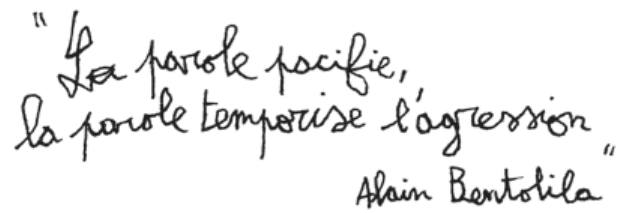 "La parole pacifie,
la parole temporise l'agression"
Alain Bentolila